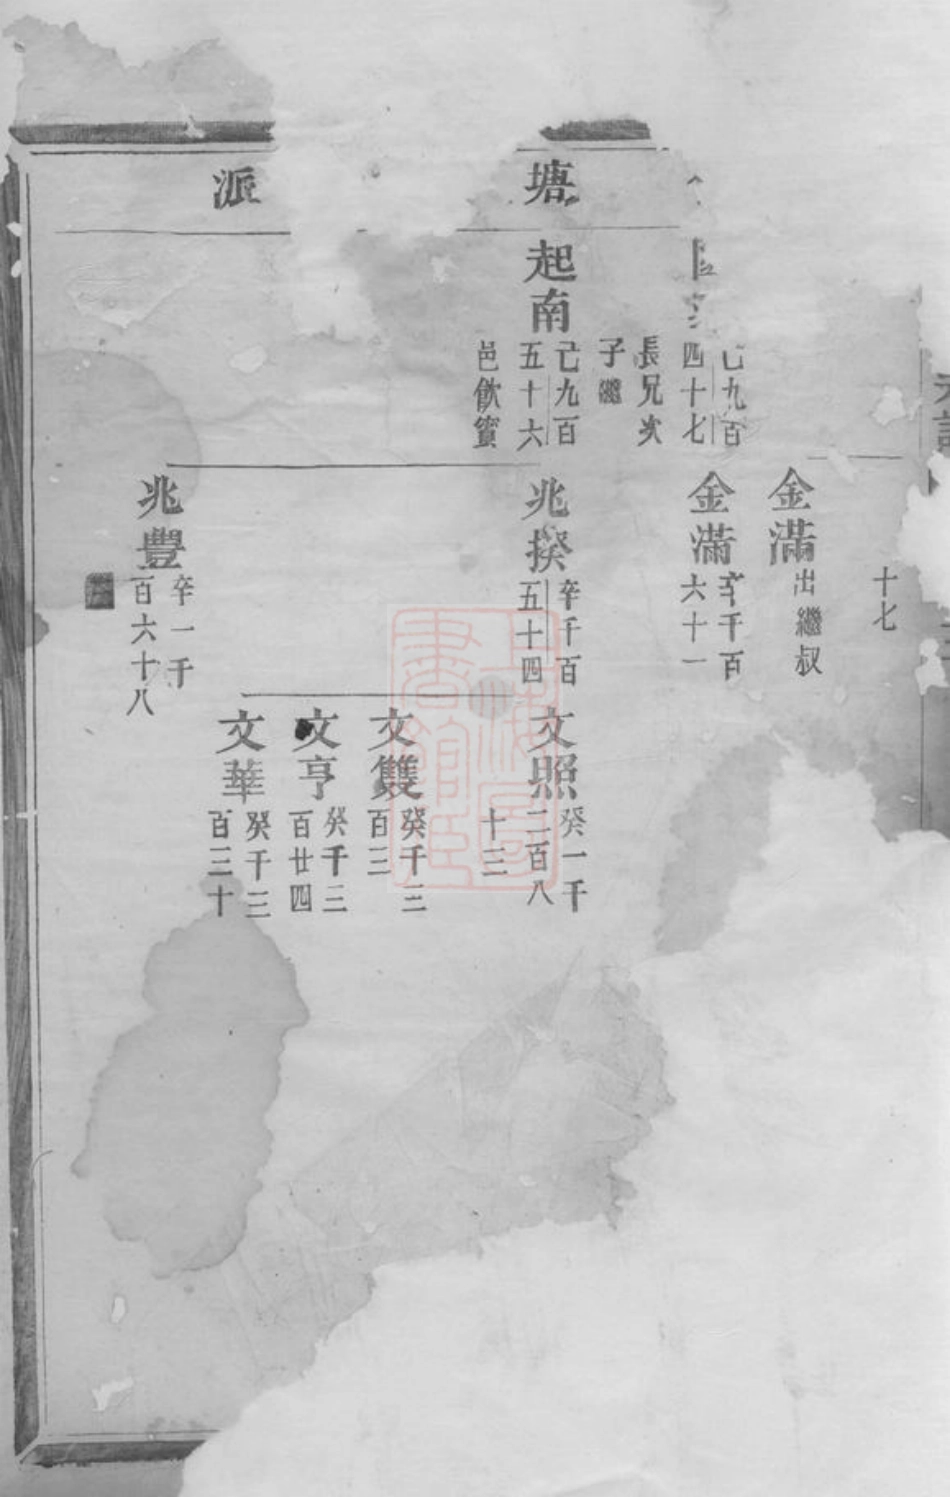 塘
派
十七
金滿
出繼叔
金滿
辛千百
六十一
己九百
四十七
長兄次
子繼
起南
己九百
五十六
邑飲賓
兆揆
辛千百
五十四
文照
癸一千
二百八
十三
文雙
癸千三
百三
文亨
癸千三
百廿四
文華
癸千三
百三十
兆豐
辛一千
百六十八